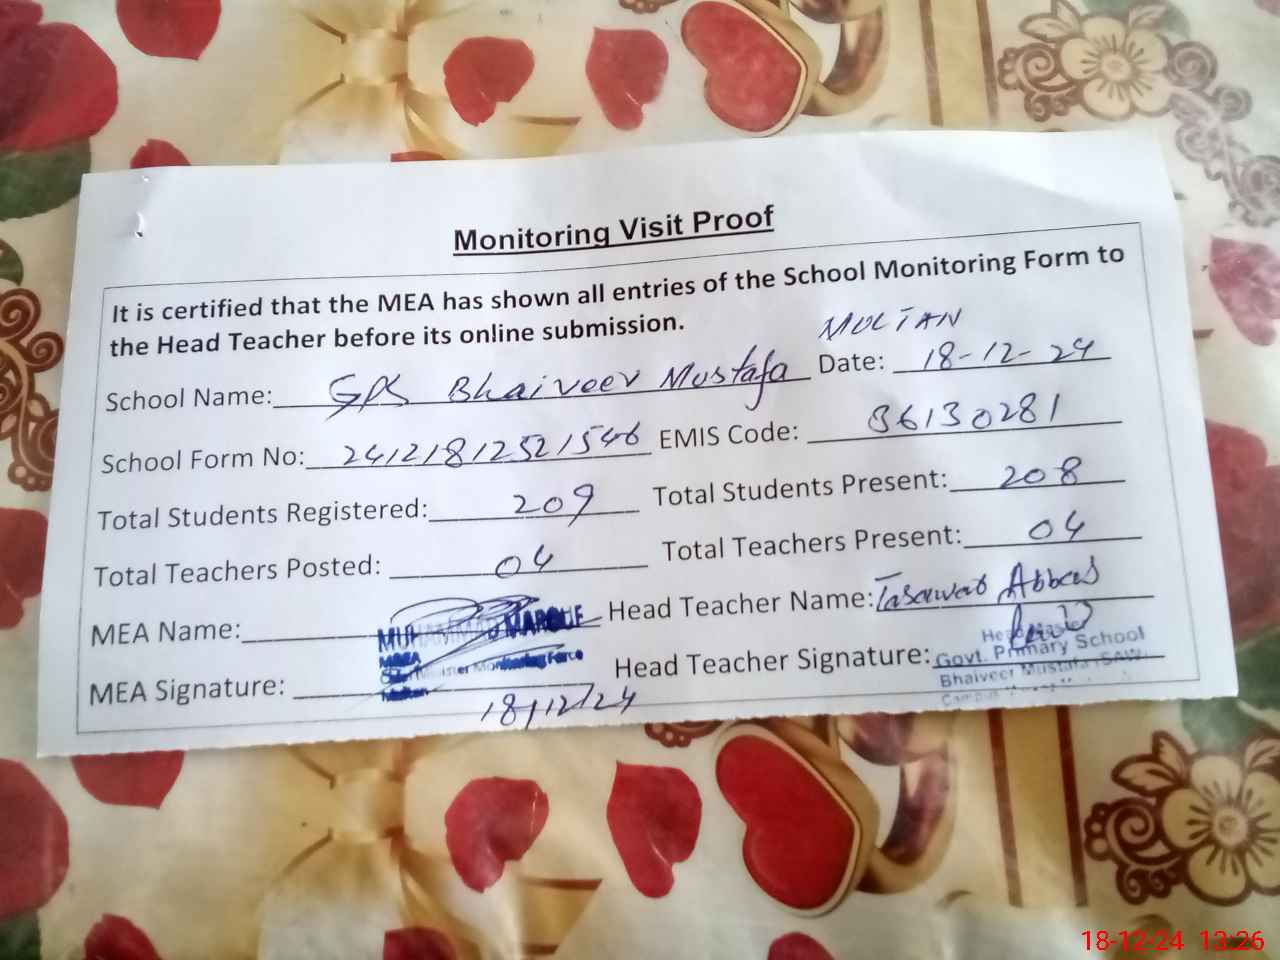 Monitoring Visit Proof
It is certified that the MEA has shown all entries of the School Monitoring Form to
the Head Teacher before its online submission.
MULTAN
School Name: GPS Bhaiveer Mustafa Date: 18-12-24
School Form No: 24121812521546 EMIS Code: 36130281
Total Students Registered: 209 Total Students Present: 208
Total Teachers Posted: 04 Total Teachers Present: 04
MEA Name: MUHAMMAD Head Teacher Name: Tasawar Abbas
MEA
Monitoring Force
Multan
MEA Signature: Head Teacher Signature:
Head Master
Govt. Primary School
Bhaiveer Mustafa (SAW)
18/12/24
18-12-24 13:26